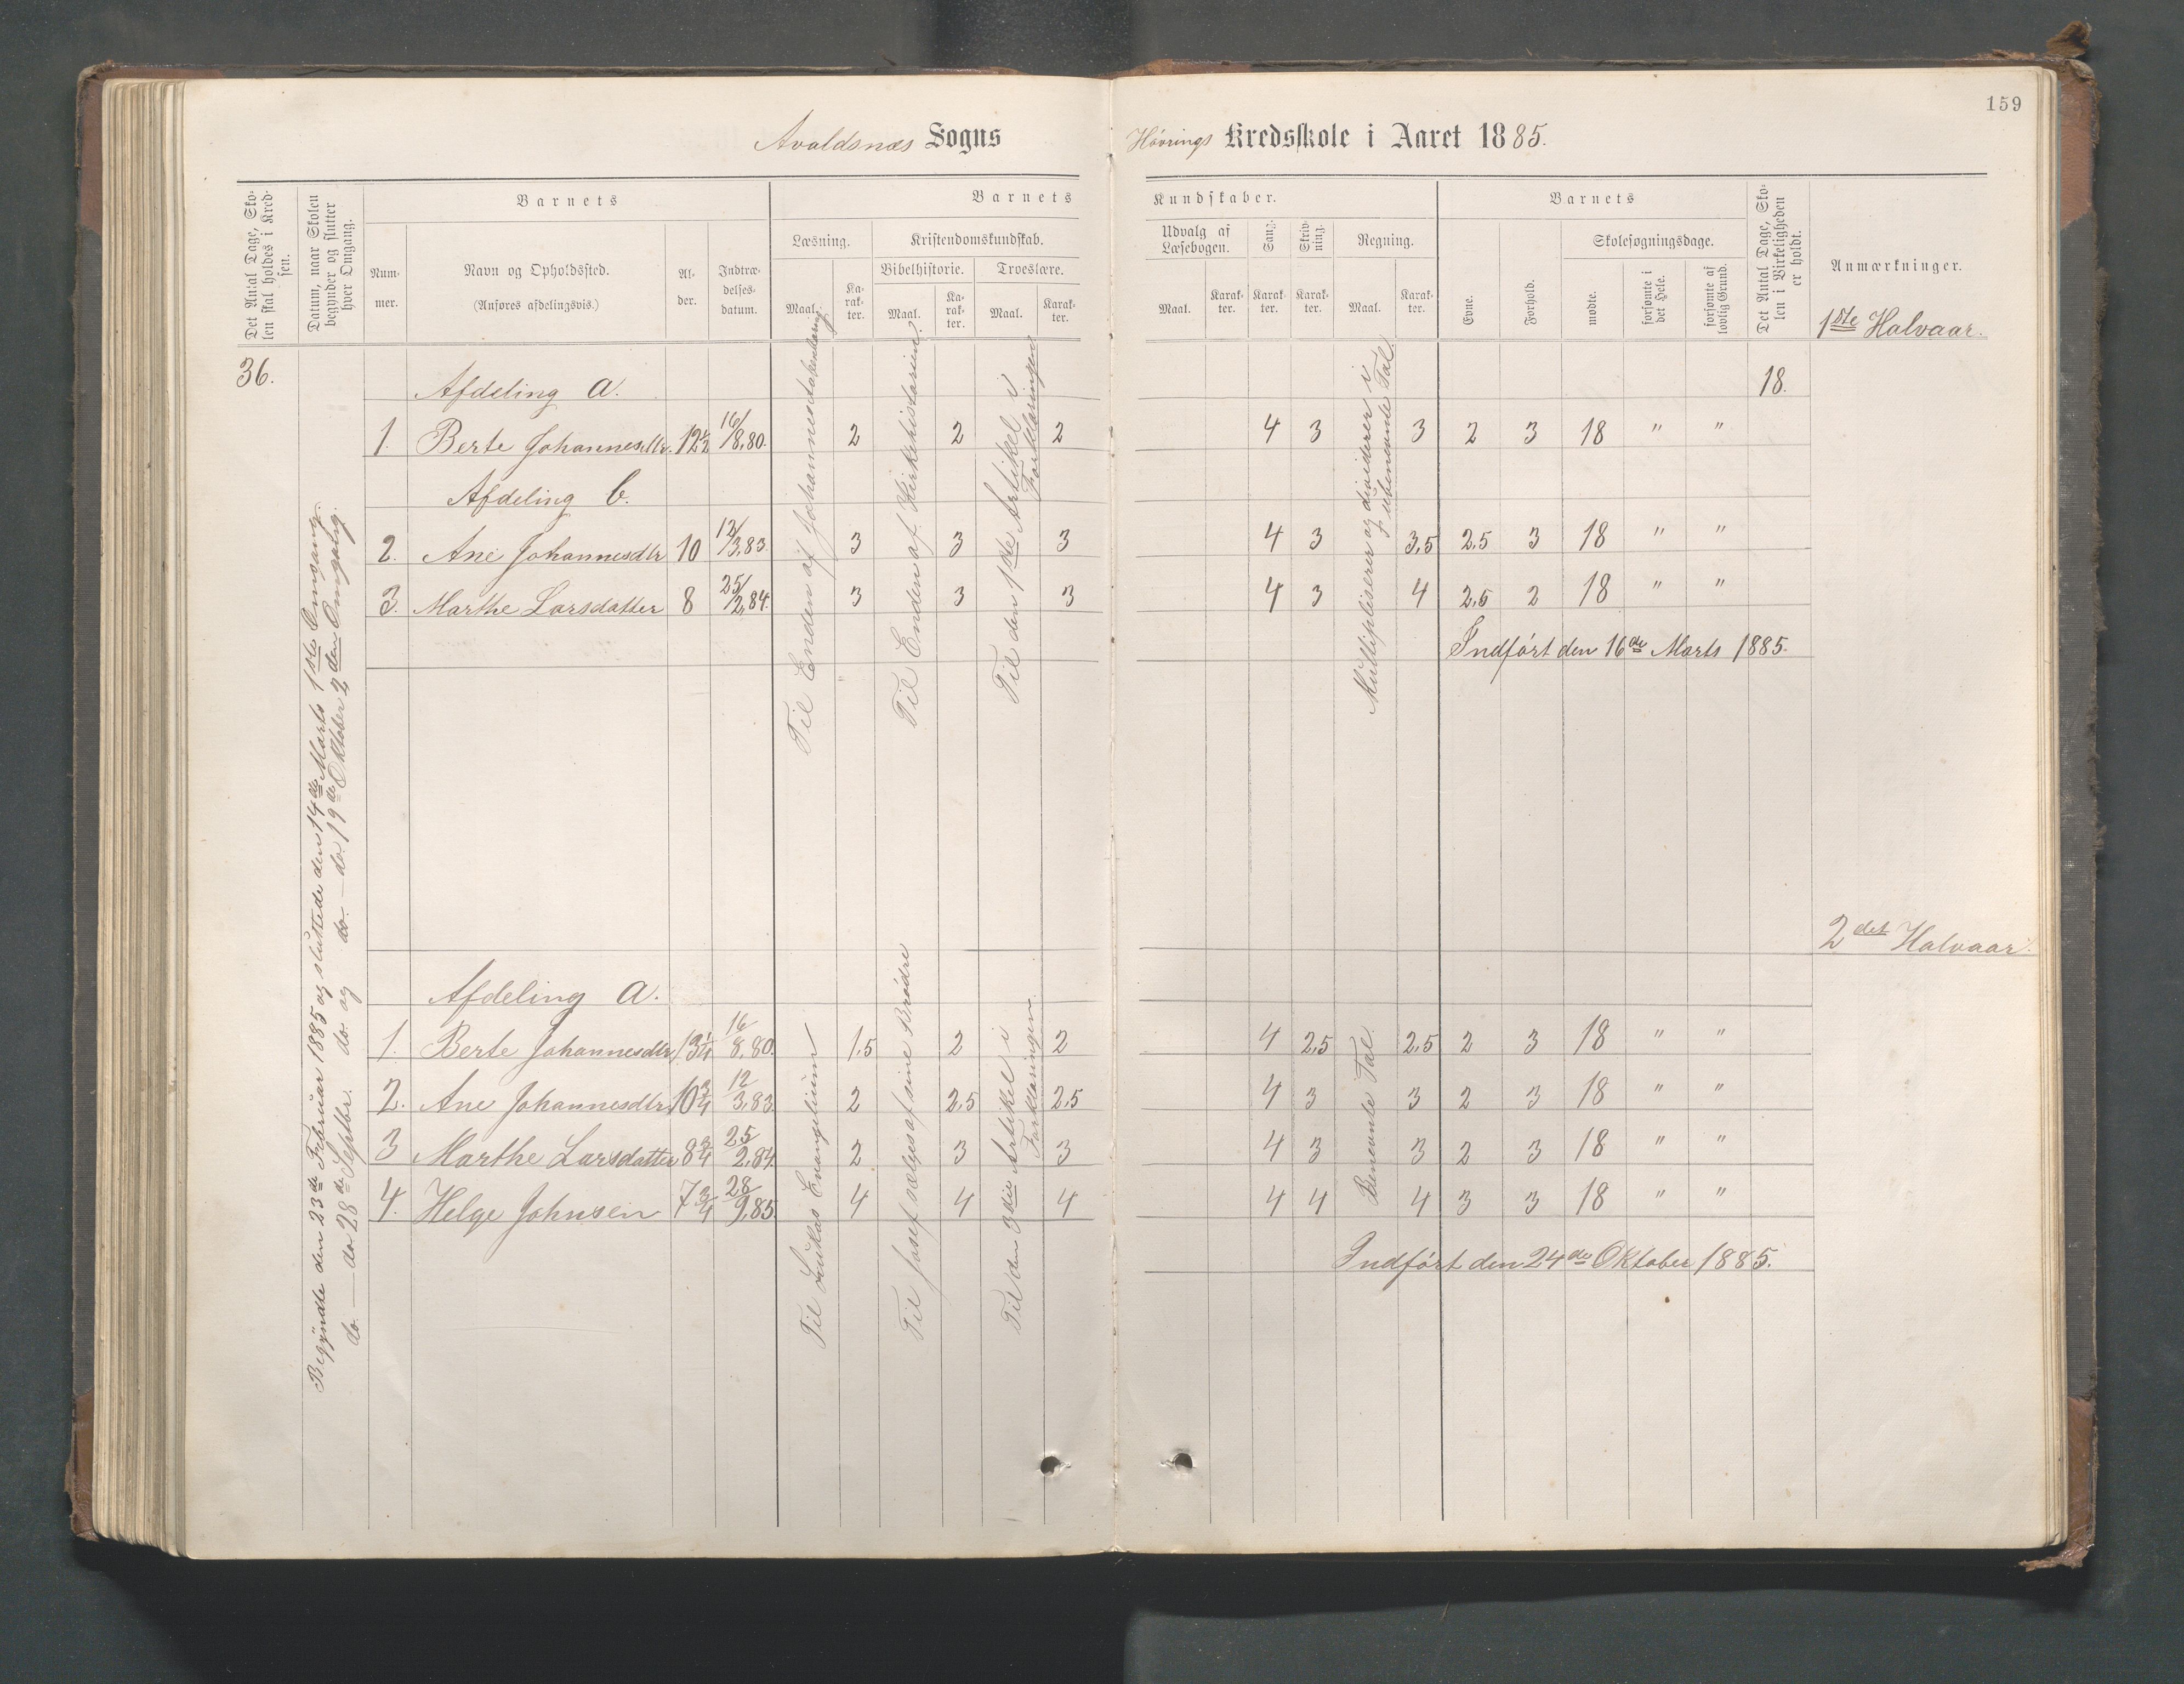 159
Avaldsnæs Sogns
Hövrings Kredsskole i Aaret 1885.
Det Antal Dage, Skolen skal holdes i Kredsen.
Datum, naar Skolen begynder og slutter hver Omgang.
Barnets
Nummer.
Navn og Opholdssted.
(Anføres afdelingsvis.)
Alder.
Indtrædelsesdatum.
Barnets
Læsning.
Maal.
Karakter.
Kristendomskundskab.
Bibelhistorie.
Maal.
Karakter.
Troeslære.
Maal.
Karakter.
Kundskaber.
Udvalg af Læsebogen.
Maal.
Karakter.
Sang.
Karakter.
Skrivning.
Karakter.
Regning.
Maal.
Karakter.
Barnets
Evne.
Forhold.
Skolesøgningsdage.
mødte.
forsømte i det Hele.
forsømte af lovlig Grund.
Det Antal Dage, Skolen i Virkeligheden er holdt.
Anmærkninger.
1ste Halvaar.
36.
18.
Begyndte den 23de Februar 1885 og sluttede den 14de Marts 1ste Omgang.
do. — do 28de Septbr. do. og do. — do. 19de Oktober 2den Omgang.
Afdeling a.
1. Berte Johannesdtr. 12½ 16/8.80. 2 2 2 4 3 3 2 3 18 " "
Afdeling b.
2. Ane Johannesdtr 10 12/3.83. 3 3 3 4 3 3,5 2,5 3 18 " "
3. Marthe Larsdatter 8 25/2.84. 3 3 3 4 3 4 2,5 2 18 " "
Til Enden af Johannes Aabenbaring.
Til Enden af Kirkehistorien.
Til den 1ste Artikel i Forklaringen
Multipliserer og dividerer i ubenævnte Tal.
Indført den 16de Marts 1885.
2det Halvaar.
Afdeling a.
1. Berte Johannesdtr. 13¼ 16/8.80. 1,5 2 2 4 2,5 2,5 2 3 18 " "
2. Ane Johannesdtr. 10¾ 12/3.83. 2 2,5 2,5 4 3 3 2 3 18 " "
3 Marthe Larsdatter 8¾ 25/2.84. 2 3 3 4 3 3 2 3 18 " "
4. Helge Johnsen 7¾ 28/9.85. 4 4 4 4 4 4 3 3 18 " "
Til Lukas Evangelium
Til Josef sælges af sine Brødre
Til den 3die Artikel i Forklaringen.
Benevnte Tal.
Indført den 24de Oktober 1885.